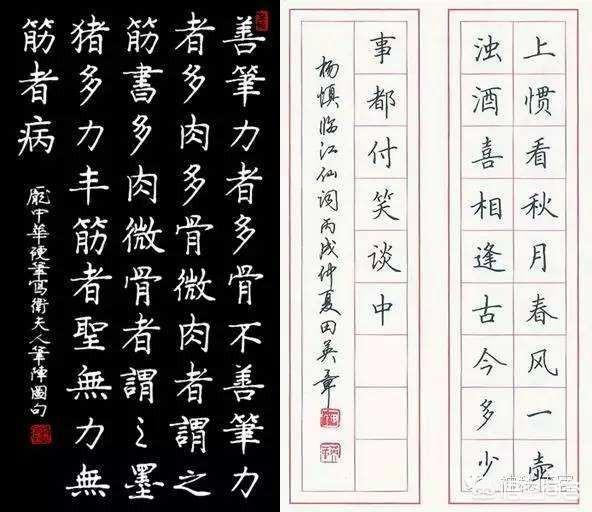 善筆力者多骨不善筆力
者多肉多骨微肉者謂之
筋書多肉微骨者謂之墨
猪多力丰筋者聖無力無
筋者病
龐中華硬筆寫衛夫人筆陣圖句
上惯看秋月春风一壶
浊酒喜相逢古今多少
事都付笑谈中
杨慎临江仙词丙戌仲夏田英章